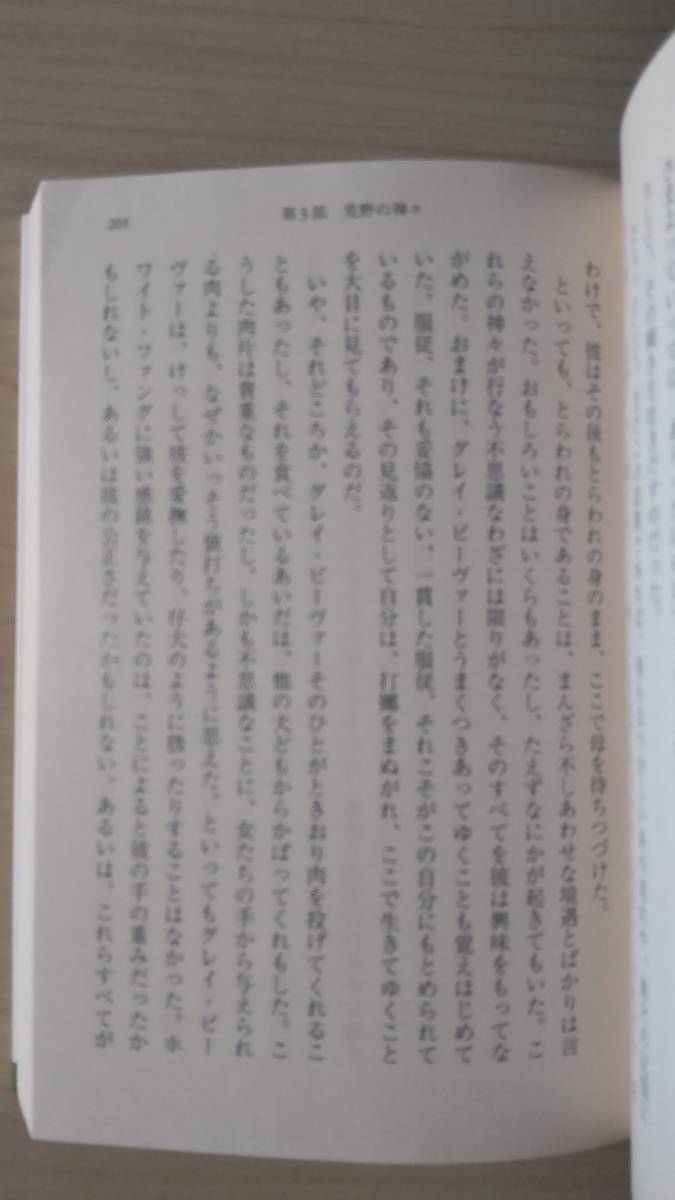 第3部 荒野の神々
205
わけで、彼はその後もとらわれの身のまま、ここで母を待ちつづけた。
といっても、とらわれの身であることは、まんざら不しあわせな境遇とばかりは言
えなかった。おもしろいことはいくらもあったし、たえずなにかが起きてもいた。こ
れらの神々が行なう不思議なわざには限りがなく、そのすべてを彼は興味をもってな
がめた。おまけに、グレイ・ビーヴァーとうまくつきあってゆくことも覚えはじめて
いた。服従、それも妥協のない、一貫した服従、それこそがこの自分にもとめられて
いるものであり、その見返りとして自分は、打擲をまぬがれ、ここで生きてゆくこと
を大目に見てもらえるのだ。
いや、それどころか、グレイ・ビーヴァーそのひとがときおり肉を投げてくれるこ
ともあったし、それを食べているあいだは、他の犬どもからかばってくれもした。こ
うした肉片は貴重なものだったし、しかも不思議なことに、女たちの手から与えられ
る肉よりも、なぜかいっそう値打ちがあるように思えた。といってもグレイ・ビー
ヴァーは、けっして彼を愛撫したり、仔犬のように扱ったりすることはなかった。ホ
ワイト・ファングに強い感銘を与えていたのは、ことによると彼の手の重みだったか
もしれないし、あるいは彼の公正さだったかもしれない。あるいは、これらすべてが